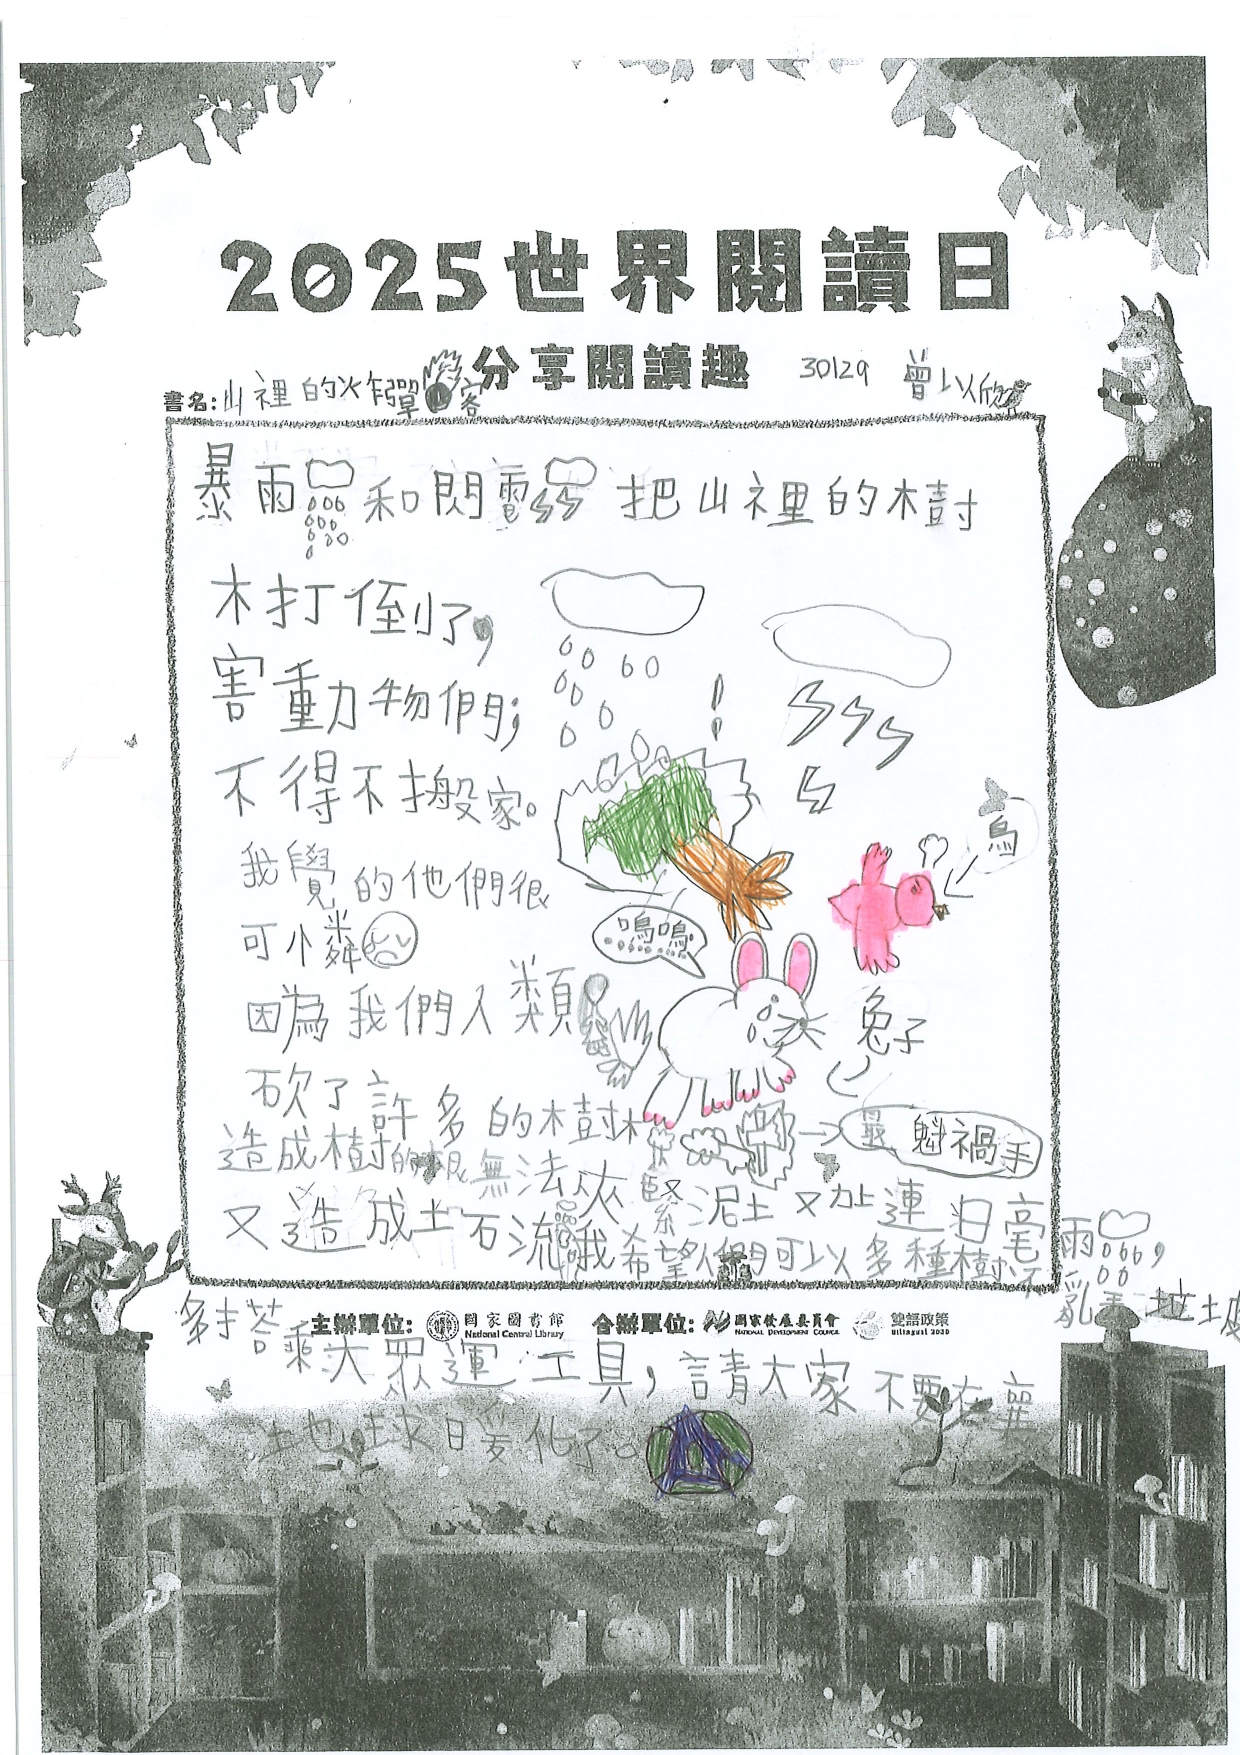 2025世界閱讀日
分享閱讀趣
30129 曾以欣
書名:山裡的火炸彈客
暴雨和閃電把山裡的木樹
木打倒了,
害動物們;
不得不搬家。
我覺的他們很
可憐
因為我們人類
砍了許多的木樹木
造成樹的根無法夾緊泥土又加上連日豪雨,
又造成土石流我希望人們可以多種樹不亂丟垃圾
多搭乘大眾運工具,請大家不要在讓
地球暖化了。
嗚嗚
鳥
兔子
最
禍手
主辦單位:
國家圖書館
National Central Library
合辦單位:
國家發展委員會
NATIONAL DEVELOPMENT COUNCIL
雙語政策
Bilingual 2030